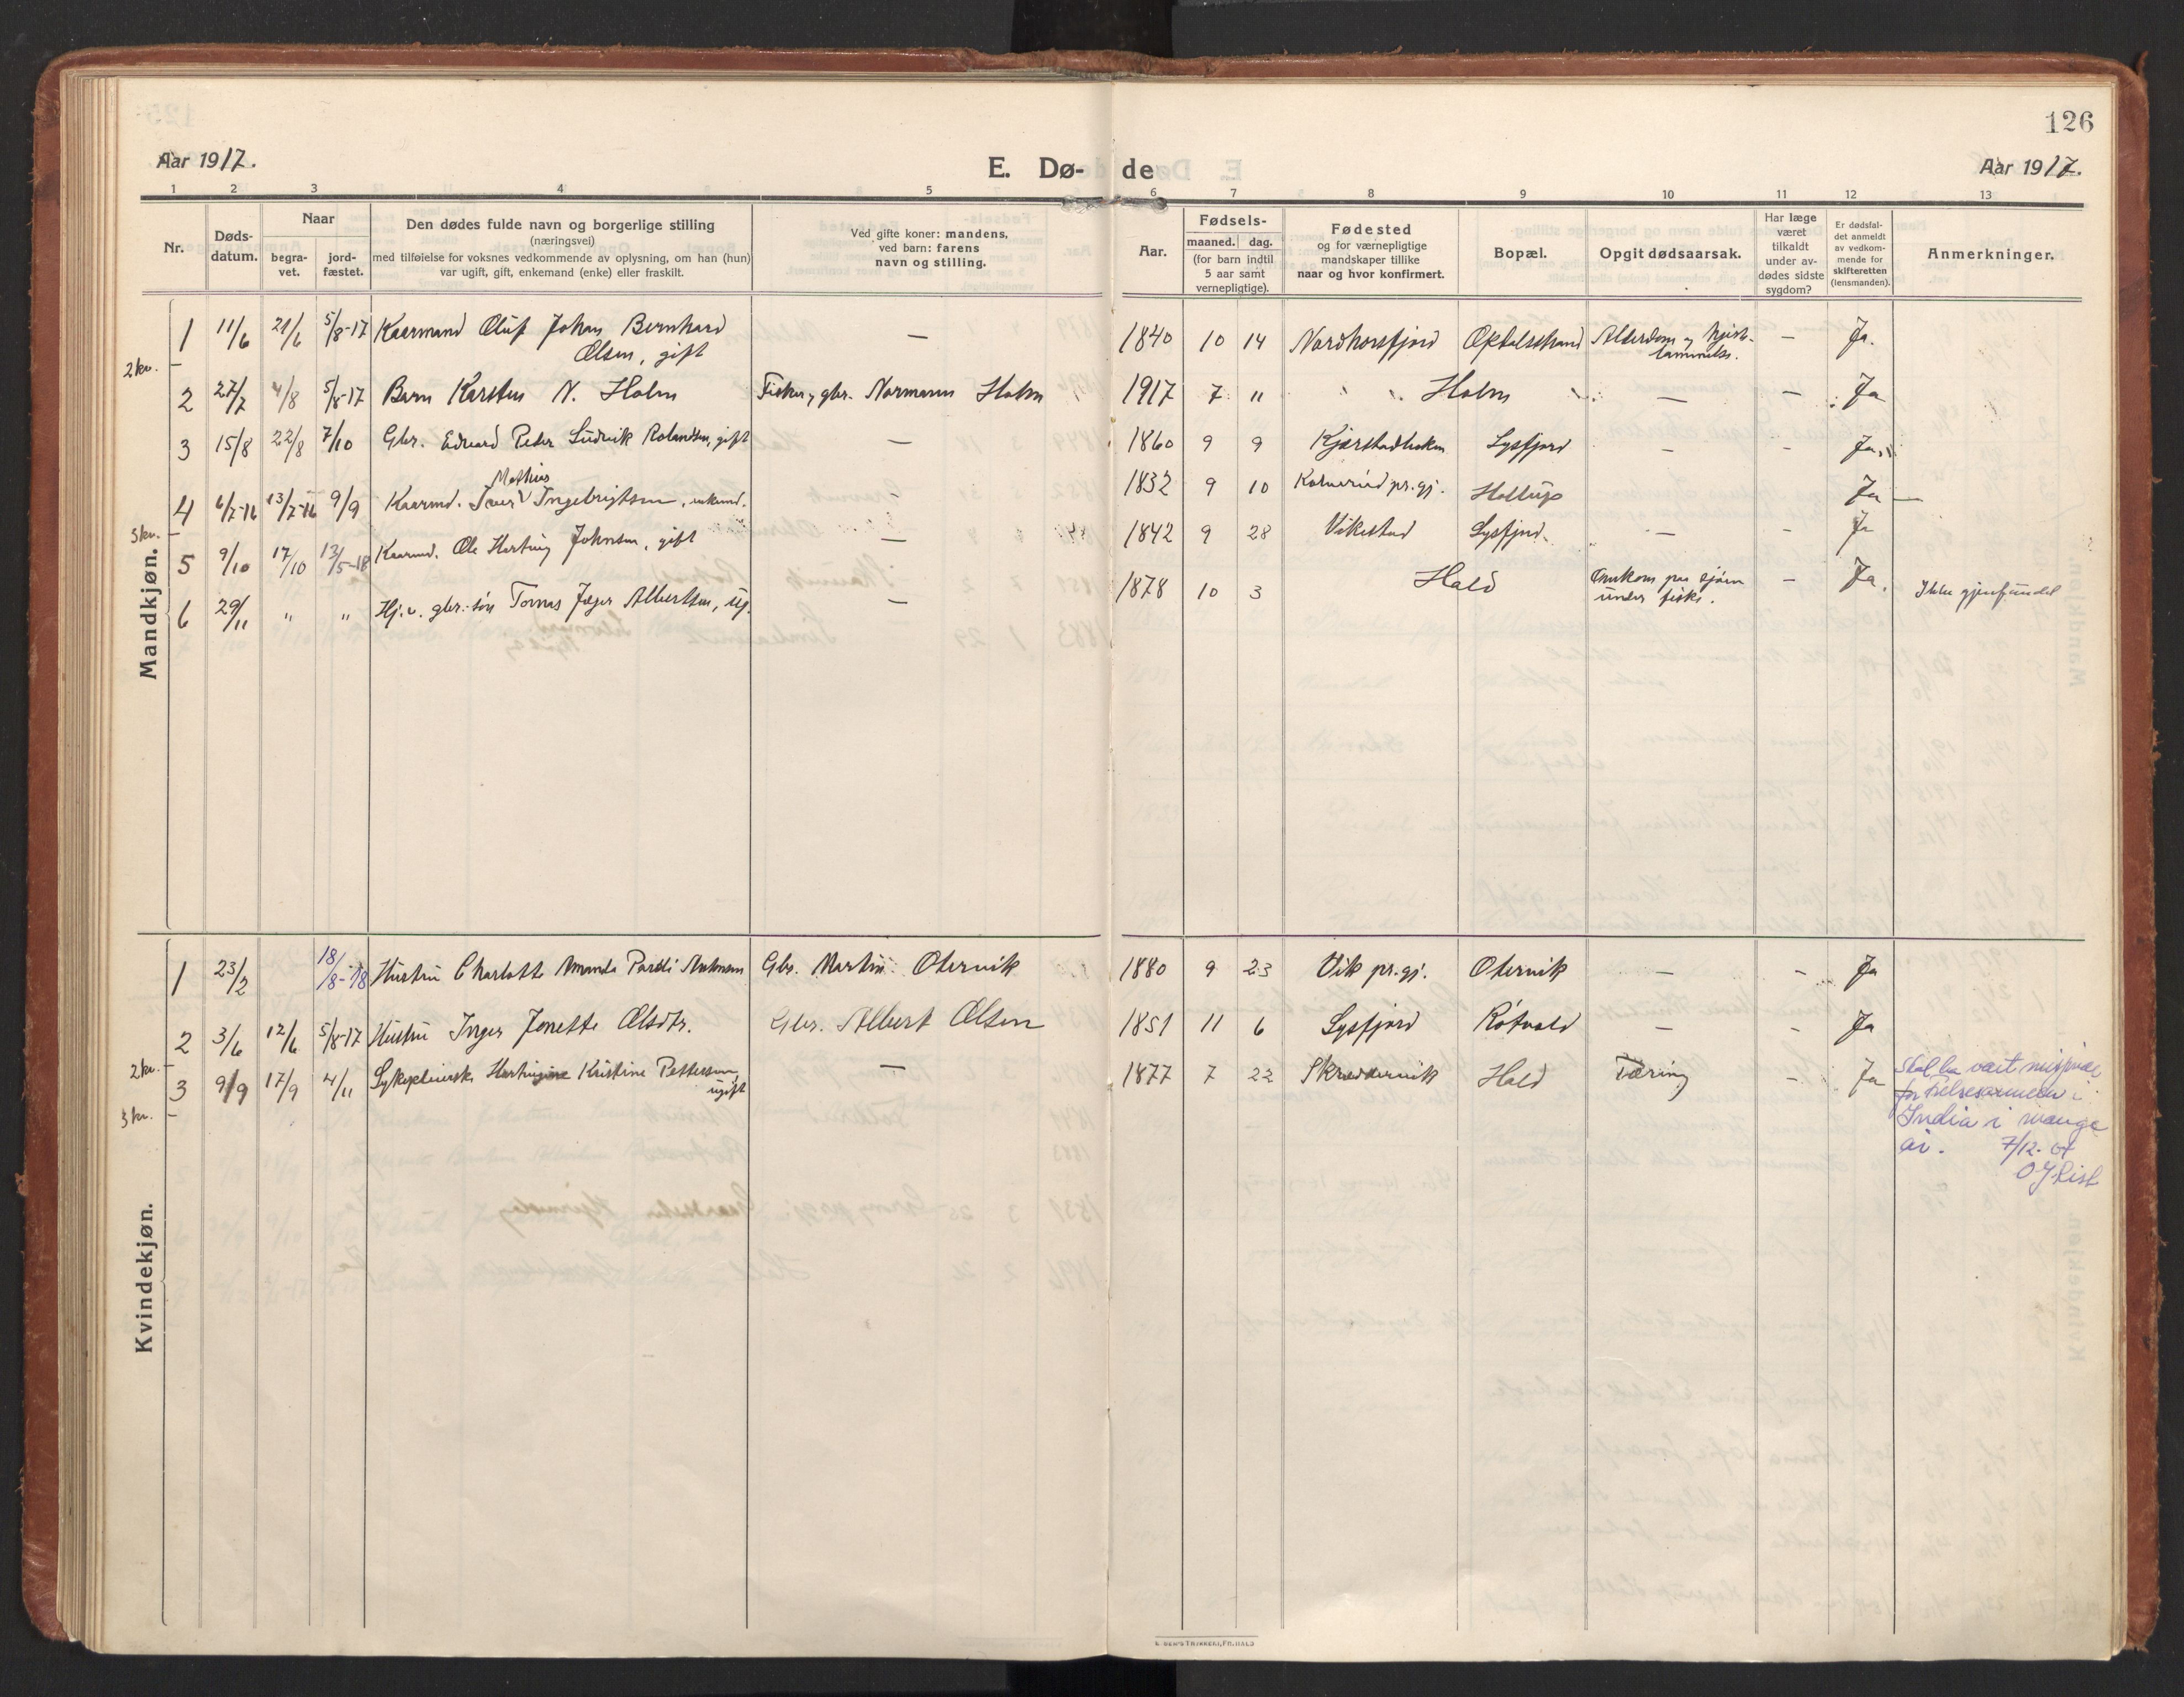 126
Aar 1917.
E. Dø-de
Aar 1917.
1 2 3 4 5 6 7 8 9 10 11 12 13
Nr.
Døds-
datum.
Naar
begra-
vet.
jord-
fæstet.
Den dødes fulde navn og borgerlige stilling
(næringsvei)
med tilføielse for voksnes vedkommende av oplysning, om han (hun)
var ugift, gift, enkemand (enke) eller fraskilt.
Ved gifte koner: mandens,
ved barn: farens
navn og stilling.
Aar.
Fødsels-
maaned. dag.
(for barn indtil
5 aar samt
vernepligtige).
Fødested
og for værnepligtige
mandskaper tillike
naar og hvor konfirmert.
Bopæl.
Opgit dødsaarsak.
Har læge
været
tilkaldt
under av-
dødes sidste
sygdom?
Er dødsfal-
det anmeldt
av vedkom-
mende for
skifteretten
(lensmanden).
Anmerkninger.
Mandkjøn.
1 11/6 21/6 5/8-17 Kaarmand Oluf Johan Bernhard — 1840 10 14 Nordhorsfjord Opdalsstrand Alderdom og hjerte- — Ja.
Olsen, gift lammelse.
2 kv. —
2 27/7 4/8 5/8-17 Barn Karsten N. Holm Fisker, gbr. Normann Holm 1917 7 " Holm — — Ja
3 15/8 22/8 7/10 Gbr. Edvard Peter Ludvik Rolandsen, gift — 1860 9 9 Lysfjord - - Ja.
Mathias
4 6/7-16 13/7-16 9/9 Kaarmd. Iver Ingebrigtsen, enkemd. - 1832 9 10 Kolvereid pr.gj. Ja —
3 kv. —
5 9/10 17/10 13/5-18 Kaarmd. Ole Hartvig Johnsen, gift — 1842 9 28 Vikestad Lysfjord. — - Ja
6 29/11 " " Hj. v. gbr. søn Tomas Jæger Albertsen, ug. — 1878 10 3 Hald Omkom paa sjøen - Ja. Ikke gjenfundet
under fiske.
Kvindekjøn.
1 23/2 18/8-18 Hustru Charlotte Amanda Gbr. Martin Otervik 1880 9 23 Vik pr.gj. Otervik — - Ja
2 3/6 12/6 5/8-17 Hustru Inger Jonette Olsdtr. Gbr. Albert Olsen 1851 11 6 Lysfjord Røtvold — - Ja
2 kv. —
3 9/9 17/9 4/11 Sykepleierske Kristine Pettersen, — 1877 7 22 Skreddervik Hald Tæring - Ja
ugift
3 kv. —
Skal ha vært misjonær
for Frelsesarmeen i
India i mange
år. 7/12-